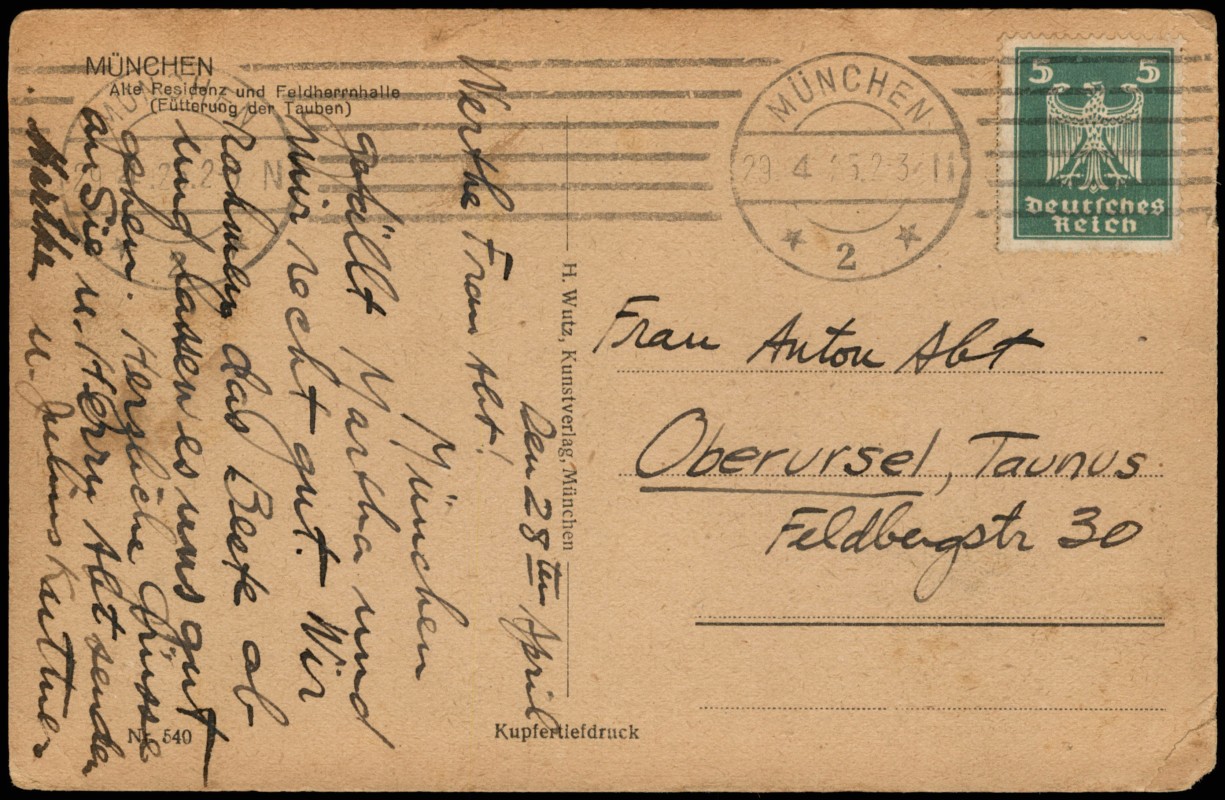 MÜNCHEN
Alte Residenz und Feldherrnhalle
(Fütterung der Tauben)
MÜNCHEN
29. 4. 2-3 N
2
5 5
Deutsches
Reich
Den 28ten April
Werthe Frau Abt!
München
gefällt Martha und
mir recht gut. Wir
nahmen das Beste ab
und lassen es uns gut
gehen. Herzliche Grüsse
an Sie u. Herrn Abt senden
Martha u. Julius
H. Wutz, Kunstverlag, München
Frau Anton Abt
Oberursel, Taunus
Feldbergstr 30
Nr. 540
Kupfertiefdruck